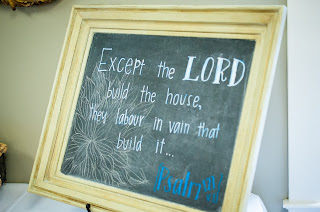 Except the LORD
build the house,
they labour in vain that
build it...
Psalm